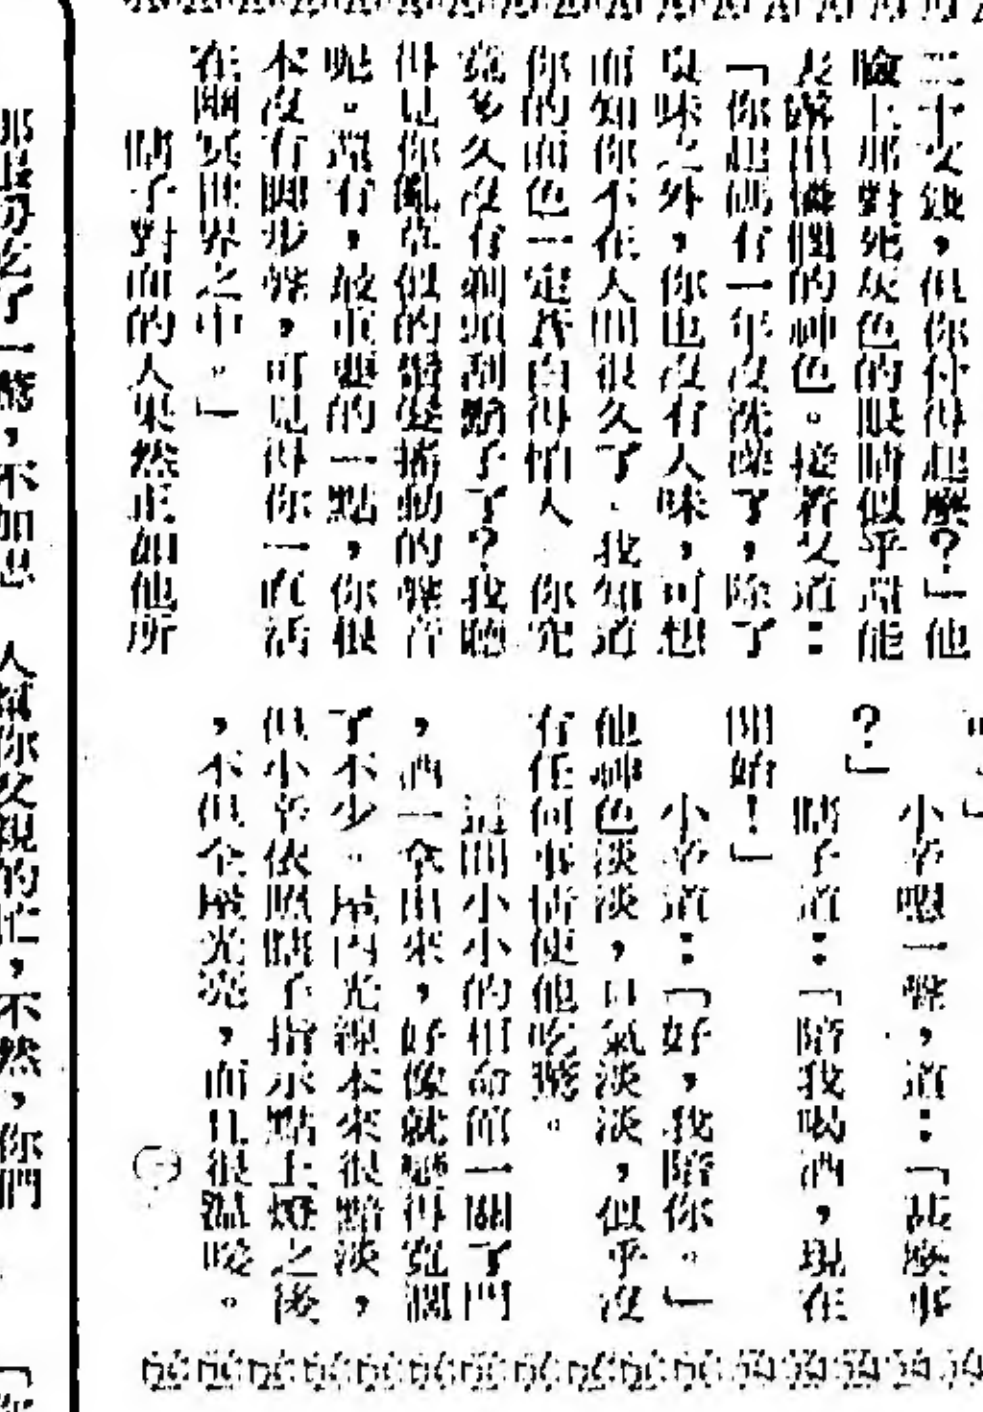 二十文錢，但你付得起麼？」他
臉上那對死灰色的眼睛似乎還能
表露出懶倦的神色。接着又道：
「你起碼有一年沒洗澡了，除了
臭味之外，你也沒有人味，可想
而知你不在人間很久了。我知道
你的面色一定蒼白得怕人。你究
竟多久沒有剃頭刮鬍子了？我聽
得見你亂草似的鬚髮擺動的聲音
呢。還有，最重要的一點，你根
本沒有脚步聲，可見得你一直活
在幽冥世界之中。」
瞎子對面的人果然正如他所
？」
小辛嗯一聲，道：「甚麼事
瞎子道：「陪我喝酒，現在
開始！」
小辛道：「好，我陪你。」
他神色淡淡，口氣淡淡，似乎沒
有任何事情使他吃驚。
這間小小的相命館一關了門
，酒一拿出來，好像就變得寬濶
了不少。屋內光線本來很黯淡，
但小辛依照瞎子指示點上燈之後
，不但全屋光亮，而且很溫暖。
人幫你父親的忙，不然，你們